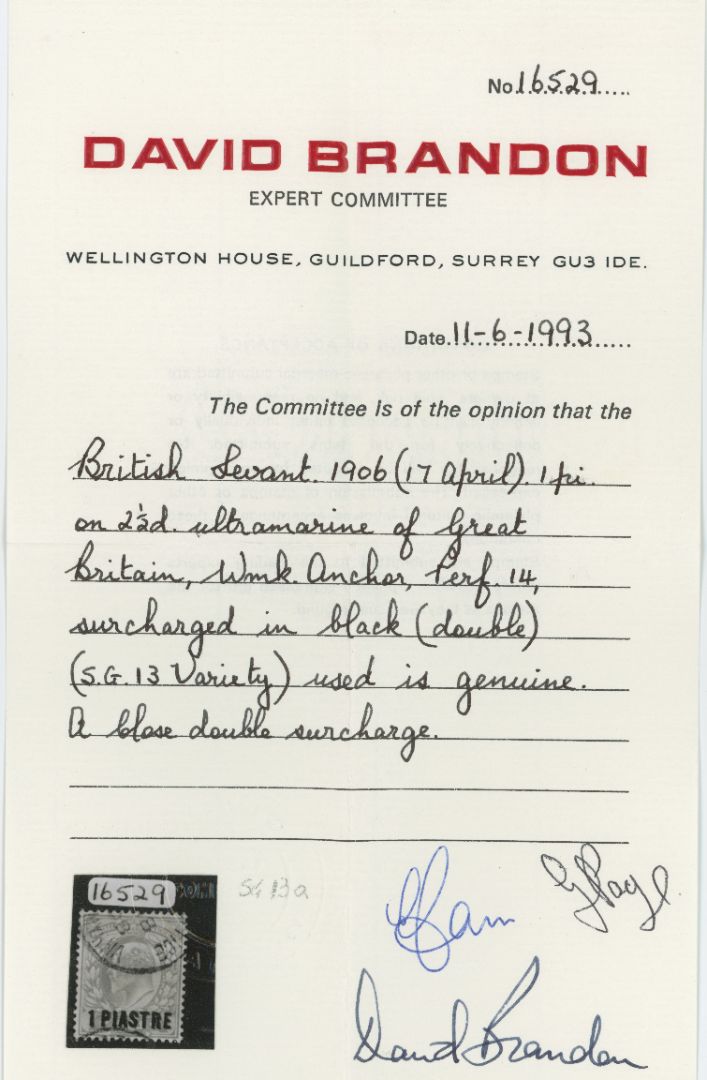 No. 16529
DAVID BRANDON
EXPERT COMMITTEE
WELLINGTON HOUSE, GUILDFORD, SURREY GU3 IDE.
Date. 11-6-1993
The Committee is of the opinion that the
British Levant. 1906 (17 April). 1 pi.
on 2½d. ultramarine of Great
Britain, Wmk. Anchor, Perf. 14,
surcharged in black (double)
(S.G. 13 Variety) used is genuine.
A close double surcharge.
16529
SG 13a
1 PIASTRE
G Page
David Brandon